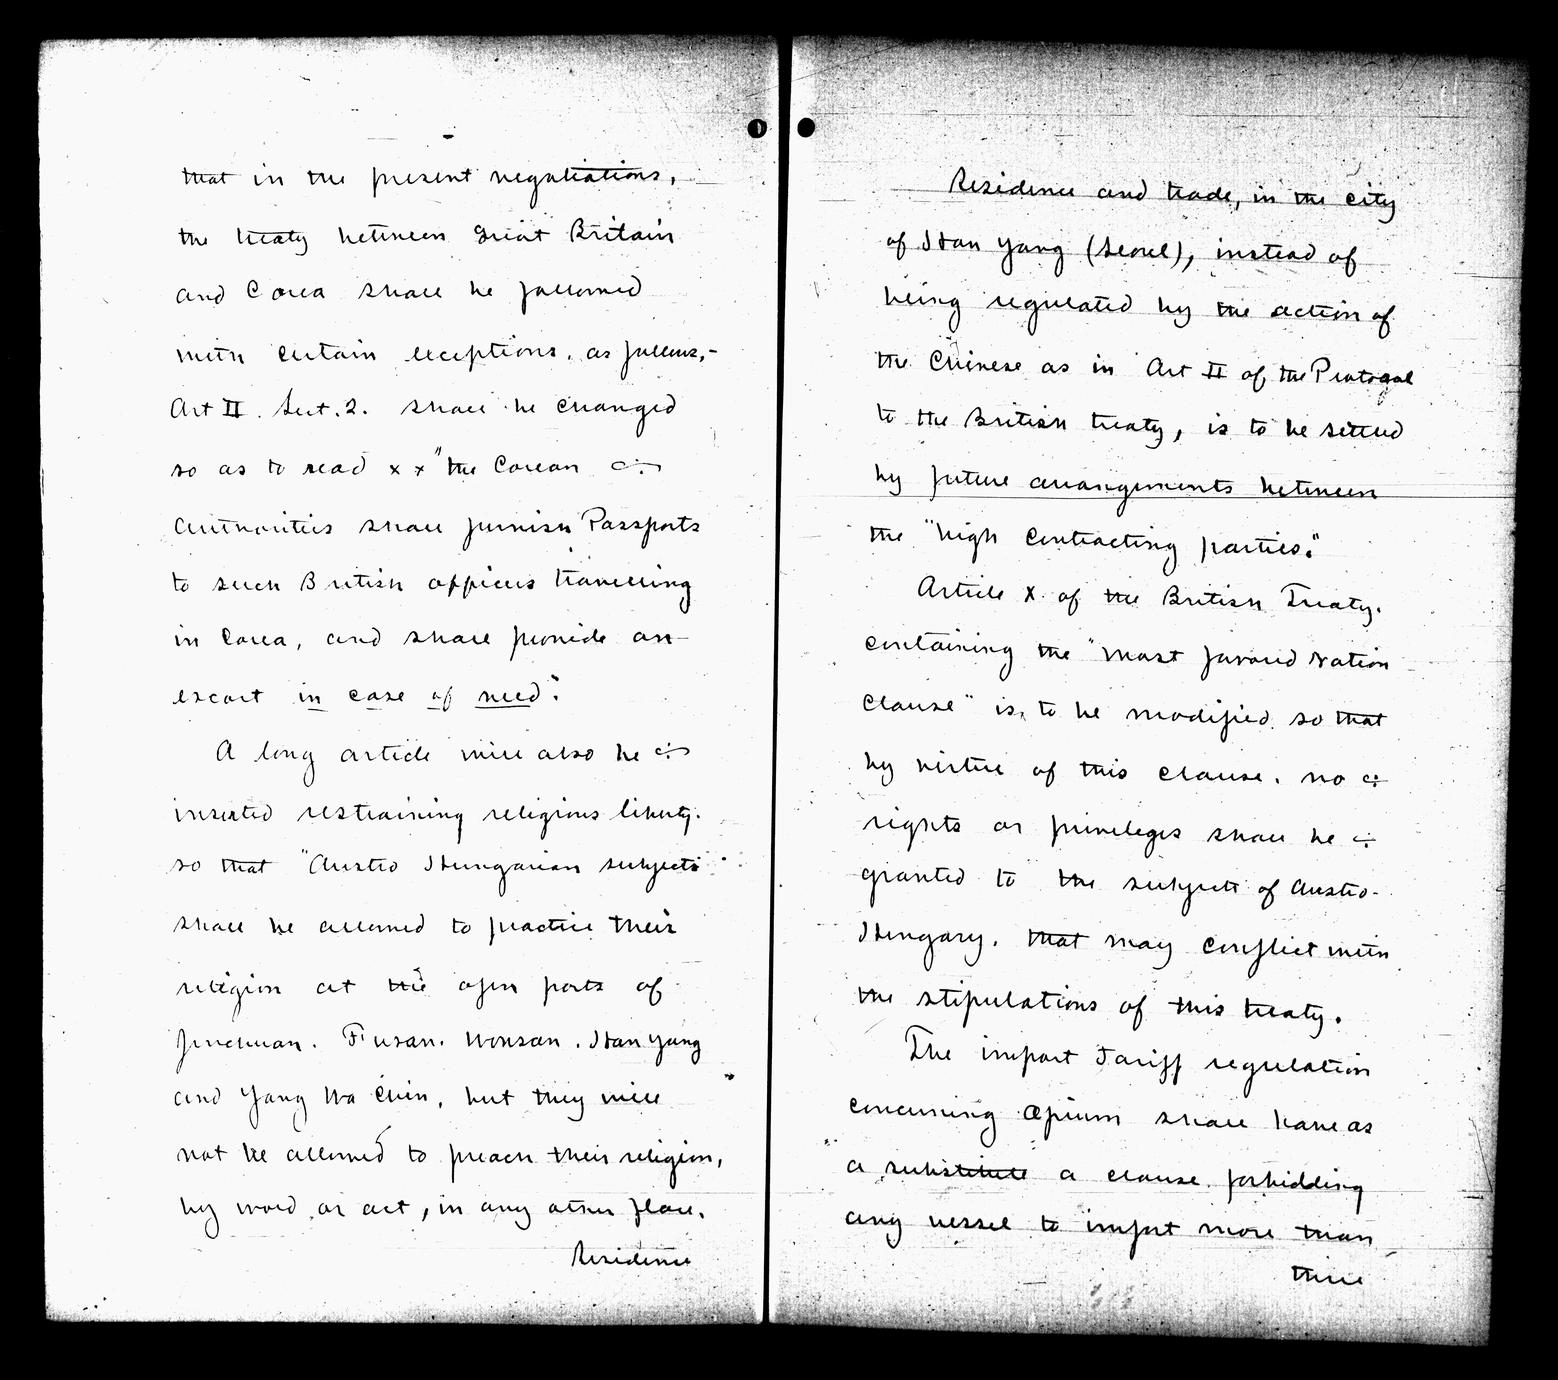 that in the present negotiations,
the treaty between Great Britain
and Corea shall be followed
with certain exceptions. as follows,-
Art II. Sect. 2. shall be changed
so as to read x x "the Corean
authorities shall furnish Passports
to such British officers travelling
in Corea, and shall provide an
escort in case of need".
A long article will also be
inserted restraining religious liberty.
so that "Austro Hungarian subjects
shall be allowed to practice their
religion at the open ports of
Jinchuan. Fusan. Wonsan. Han Yang
and Yang Wa Chin, but they will
not be allowed to preach their religion,
by word or act, in any other place.
Residence
Residence and trade, in the city
of Han Yang (Seoul), instead of
being regulated by the action of
the Chinese as in Art II of the Protocol
to the British treaty, is to be settled
by future arrangements between
the "high contracting parties".
Article X of the British Treaty.
containing the "most favored nation
clause" is, to be modified so that
by virtue of this clause. no
rights or privileges shall be
granted to the subjects of Austro-
Hungary. that may conflict with
the stipulations of this treaty.
The import Tariff regulation
concerning Opium shall have as
a substitute a clause forbidding
any vessel to import more than
three